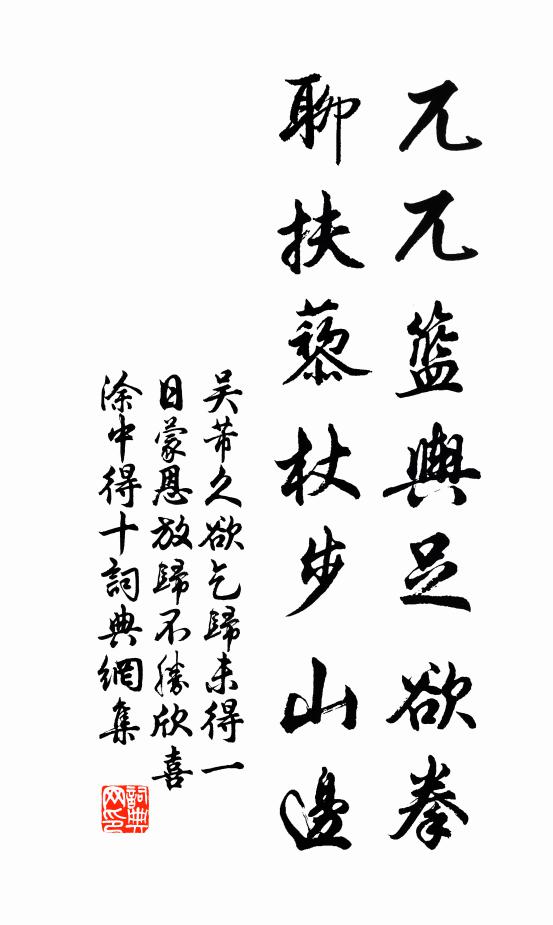 兀兀籃輿足欲拳
聊扶藜杖步山邊
吴芾久欲乞歸未得一
日蒙恩放歸不勝欣喜
涂中得十詞典網集
詞典
网印